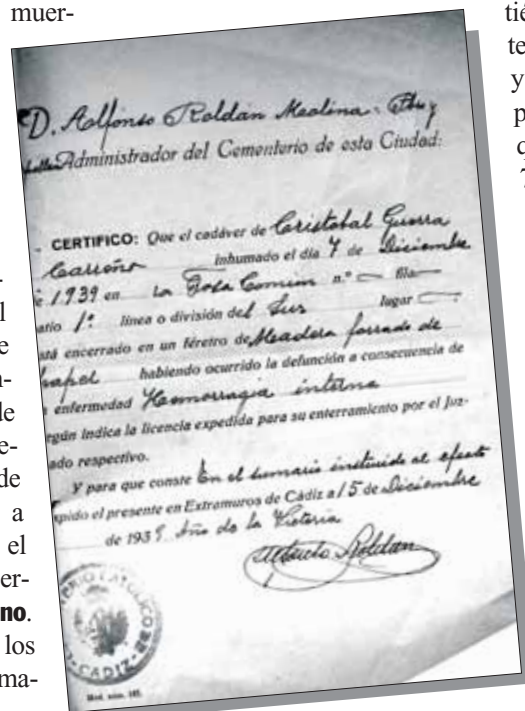 muer-
D. Alfonso Roldán Medina: Pbro y
Administrador del Cementerio de esta Ciudad:
- CERTIFICO: Que el cadáver de Cristobal Guerra
Carreño inhumado el día 7 de Diciembre
e 1939 en La Fosa Común n.º fila
atio 1º línea o división del Sur lugar
stá encerrado en un féretro de Madera forrado de
papel habiendo ocurrido la defunción a consecuencia de
enfermedad Hemorragia interna
egún indica la licencia expedida para su enterramiento por el Juz-
ado respectivo.
Y para que conste En el sumario instruido al efecto
xpido el presente en Extramuros de Cádiz a 15 de Diciembre
de 1939 Año de la Victoria
Roldan
CADIZ
Mod. núm. 102.
l
e
n-
de
e-
de
a
el
er-
no.
los
ma-
tié
te
y
p
q
7